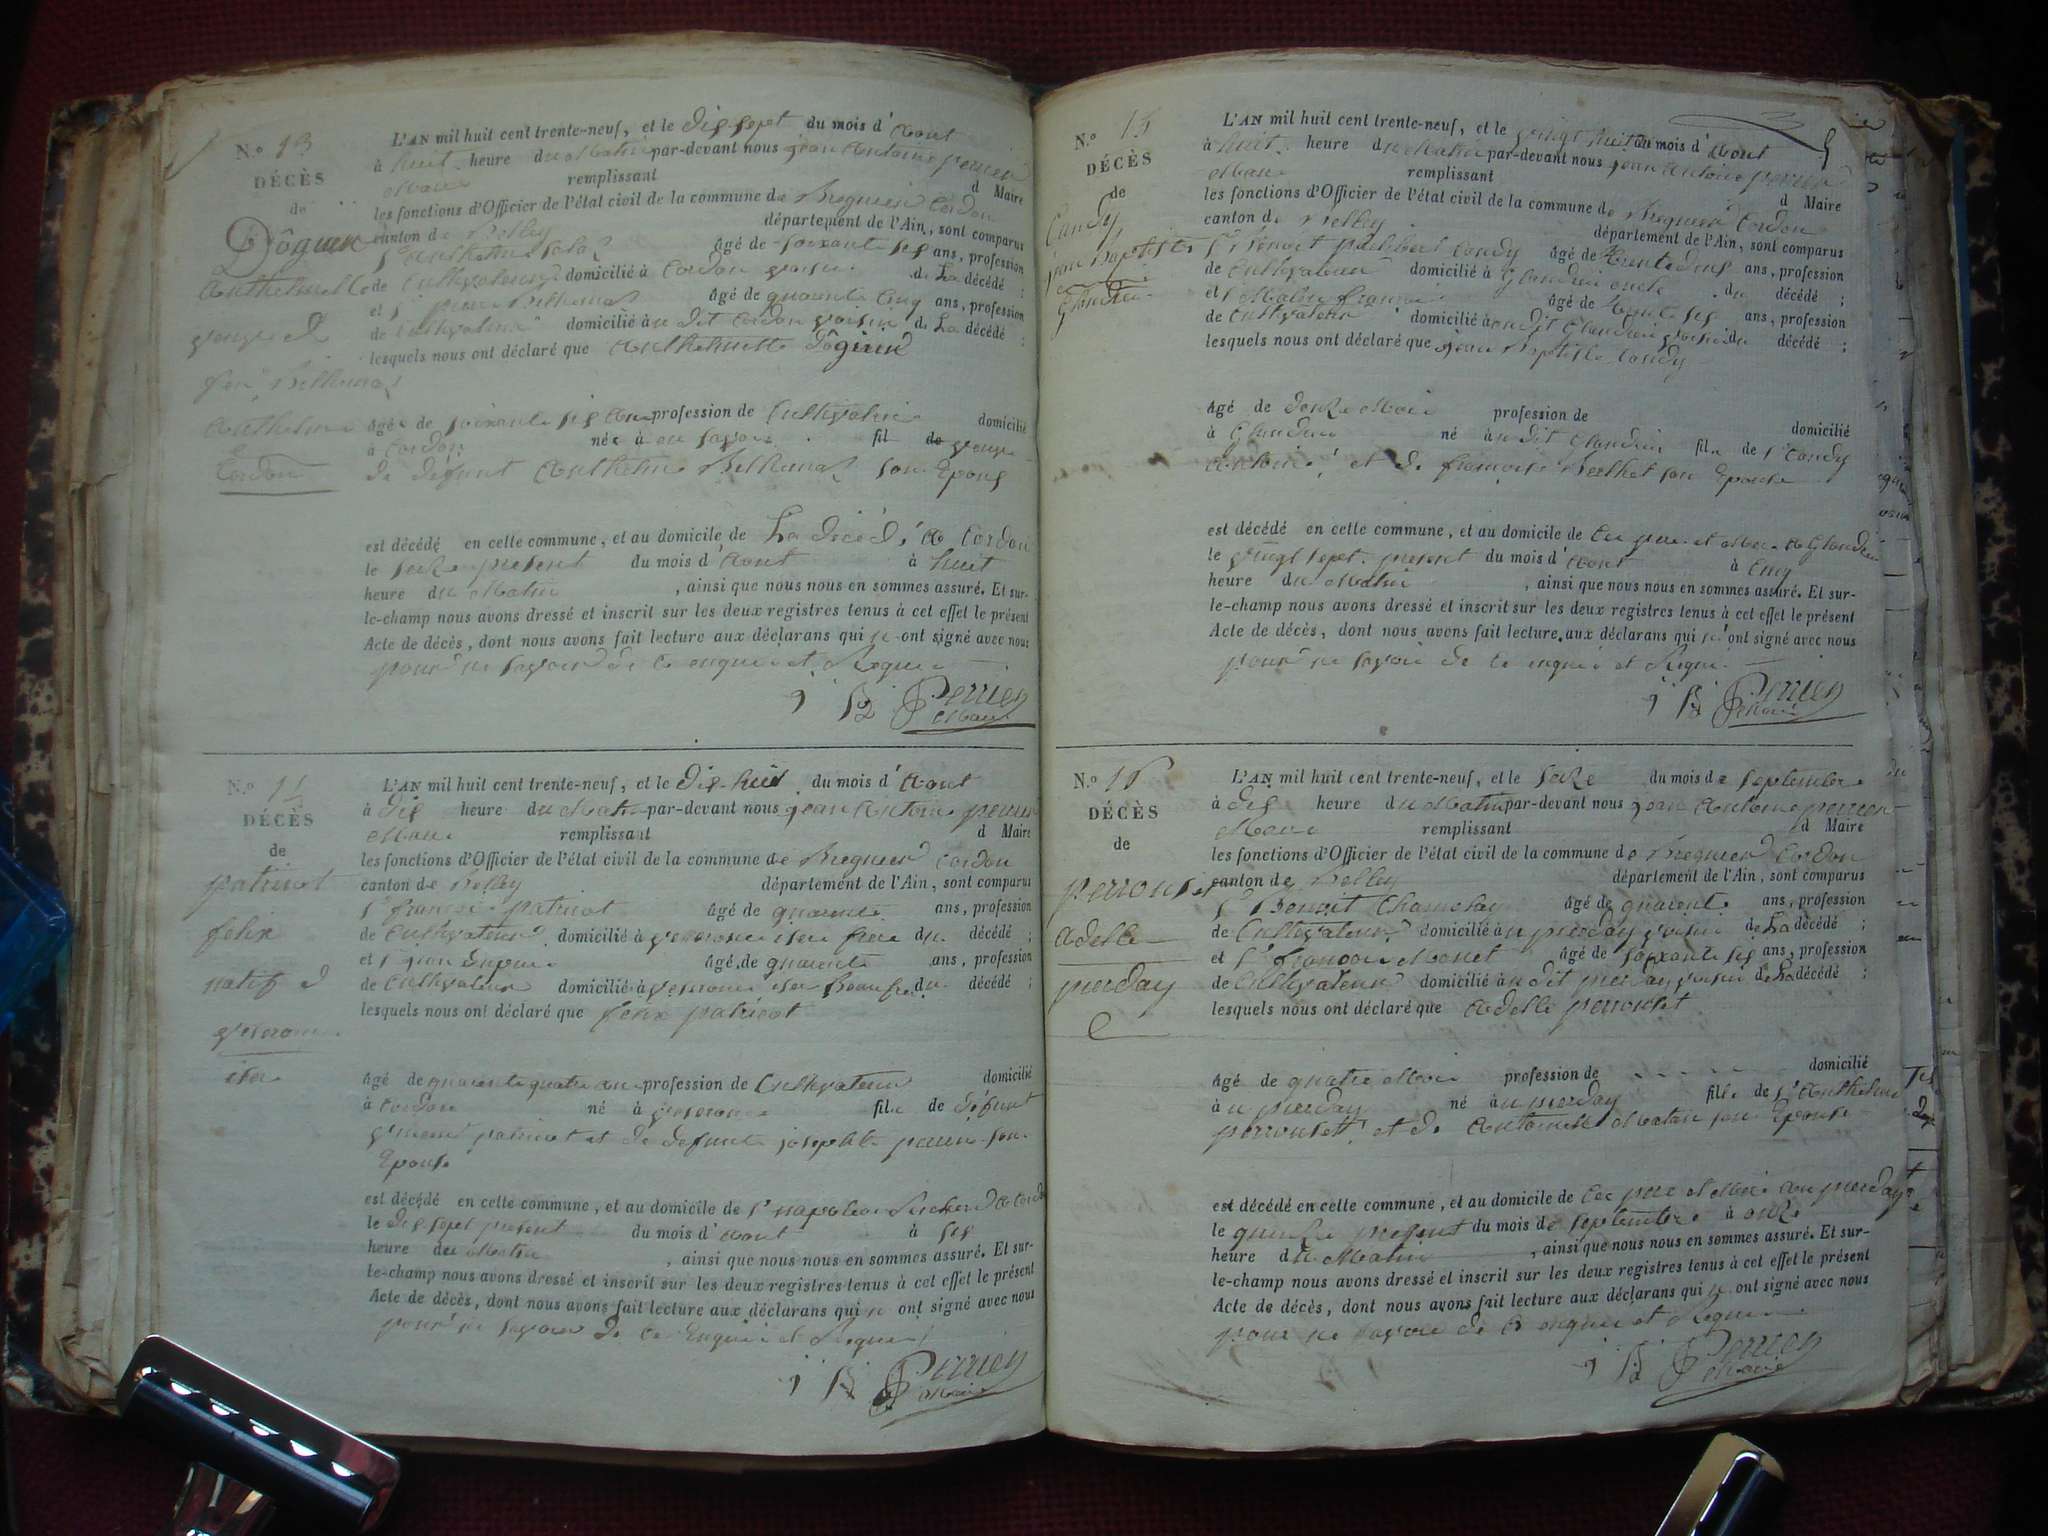 N.o 13
DÉCÈS
de
Dôguin
Anthelmette
veuve d
feu Belhuma
Anthelme
Cordon
L'AN mil huit cent trente-neuf, et le dis sept du mois d'Aout
à huit heure du Matin par-devant nous jean Antoine perrier
Maire remplissant d Maire
les fonctions d'Officier de l'état civil de la commune de Bregnier Cordon
canton de Belley département de l'Ain, sont comparus
âgé de soixante sis ans, profession
de Cultivateur domicilié à Cordon voisin de La décédé ;
et âgé de quarente Cinq ans, profession
de Cultivateur domicilié à u dit Cordon voisin de La décédé ;
lesquels nous ont déclaré que Anthelmette Dôguin
âgé e de soixante sis ans profession de Cultivatrice domicilié
à Cordon née à en savoie fil de veuve
de defunt Anthelme son Epous
est décédé en cette commune, et au domicile de La décédé à Cordon
le seize present du mois d'Aout à huit
heure du Matin , ainsi que nous nous en sommes assuré. Et sur-
le-champ nous avons dressé et inscrit sur les deux registres tenus à cet effet le présent
Acte de décès, dont nous avons fait lecture aux déclarans qui ne ont signé avec nous
pour ne savoir de ce enquis et Requis
Perrier
Maire
N.o
DÉCÈS
de
patricot
felix
natif d
veseronce
iser
L'AN mil huit cent trente-neuf, et le dis-huit du mois d'Aout
à dis heure du Matin par-devant nous jean Antoine perrier
Maire remplissant d Maire
les fonctions d'Officier de l'état civil de la commune de Bregnier Cordon
canton de Belley département de l'Ain, sont comparus
s.r françois patricot âgé de quarente ans, profession
de Cultivateur domicilié à veseronce iser frere du décédé ;
et s.r jean âgé de quarente ans, profession
de Cultivateur domicilié à veseronce iser Beaufrere du décédé ;
lesquels nous ont déclaré que felix patricot
âgé de quarente quatre ans profession de Cultivateur domicilié
à Cordon né à veseronce fils de défunt
patricot et de defunte josephte son
Epouse
est décédé en cette commune, et au domicile de s.r napoleon à Cordon
le dis sept present du mois d'Aout à sis
heure du Matin , ainsi que nous nous en sommes assuré. Et sur-
le-champ nous avons dressé et inscrit sur les deux registres tenus à cet effet le présent
Acte de décès, dont nous avons fait lecture aux déclarans qui ne ont signé avec nous
pour ne savoir de ce Enquis et Requis
Perrier
Maire
N.o 15
DÉCÈS
de
Candy
jean Baptiste
Glandieu
L'AN mil huit cent trente-neuf, et le vingt huit du mois d'Aout
à huit heure du Matin par-devant nous jean Antoine perrier
Maire remplissant d Maire
les fonctions d'Officier de l'état civil de la commune de Bregnier Cordon
canton de Belley département de l'Ain, sont comparus
s.r Benoit philibert Candy âgé de trente deus ans, profession
de Cultivateur domicilié à Glandieu oncle du décédé ;
et s.r françois âgé de trente sis ans, profession
de Cultivateur domicilié à u dit Glandieu voisin du décédé ;
lesquels nous ont déclaré que jean Baptiste Candy
âgé de Mois profession de domicilié
à Glandieu né à u dit Glandieu fils de s.r Candy
Antoine, et de françoise Berthet son Epouse
est décédé en cette commune, et au domicile de Ces pere et Mere à Glandieu
le vingt sept present du mois d'Aout à Cinq
heure du Matin , ainsi que nous nous en sommes assuré. Et sur-
le-champ nous avons dressé et inscrit sur les deux registres tenus à cet effet le présent
Acte de décès, dont nous avons fait lecture aux déclarans qui n'ont signé avec nous
pour ne savoir de ce enquis et Requis
Perrier
Maire
N.o 16
DÉCÈS
de
perrouset
Adelle
pierday
L'AN mil huit cent trente-neuf, et le seize du mois de septembre
à dis heure du Matin par-devant nous jean Antoine perrier
Maire remplissant d Maire
les fonctions d'Officier de l'état civil de la commune de Bregnier Cordon
canton de Belley département de l'Ain, sont comparus
s.r Benoit âgé de quarente ans, profession
de Cultivateur domicilié à u pierday voisin de La décédé ;
et s.r françois Monet âgé de soixante sis ans, profession
de Cultivateur domicilié à u dit pierday voisin de La décédé ;
lesquels nous ont déclaré que Adelle perrouset
âgé de quatre Mois profession de domicilié
à u pierday né à u pierday fille de s.r Anthelme
perrouset, et de son Epouse
est décédé en cette commune, et au domicile de Ces pere et Mere au pierday
le quinze present du mois de septembre à onze
heure du Matin , ainsi que nous nous en sommes assuré. Et sur-
le-champ nous avons dressé et inscrit sur les deux registres tenus à cet effet le présent
Acte de décès, dont nous avons fait lecture aux déclarans qui ne ont signé avec nous
pour ne savoir de ce enquis et Requis
Perrier
Maire